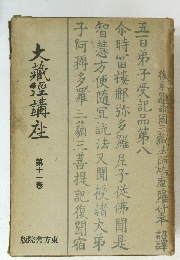 後秦龜茲國三藏法師鳩摩羅什奉 詔譯
五百弟子受記品第八
尒時富樓那彌多羅尼子從佛聞是
智慧方便隨宜說法又聞授諸大弟
子阿耨多羅三藐三菩提記復聞宿
大藏經講座
第十一卷
東方書院版